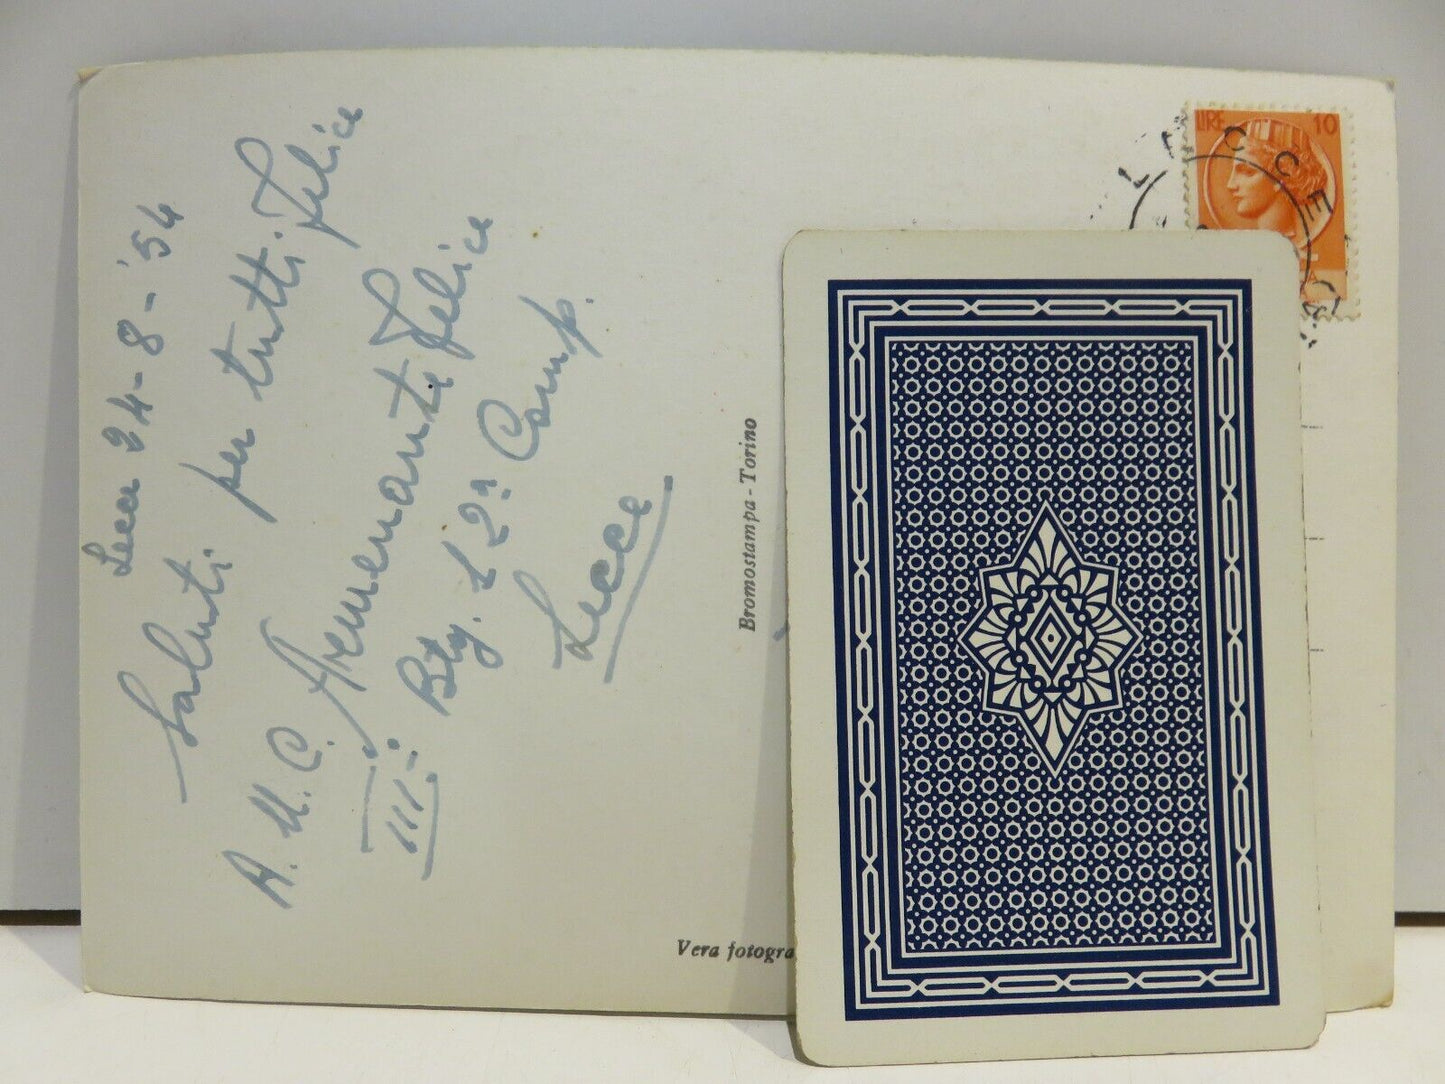 Lecce 24-8-'54
Saluti per tutti. Felice
A. U. C. Felice
III: Btg. 12ª Comp.
Lecce
Bromostampa - Torino
Vera fotogra
LIRE 10
LECCE